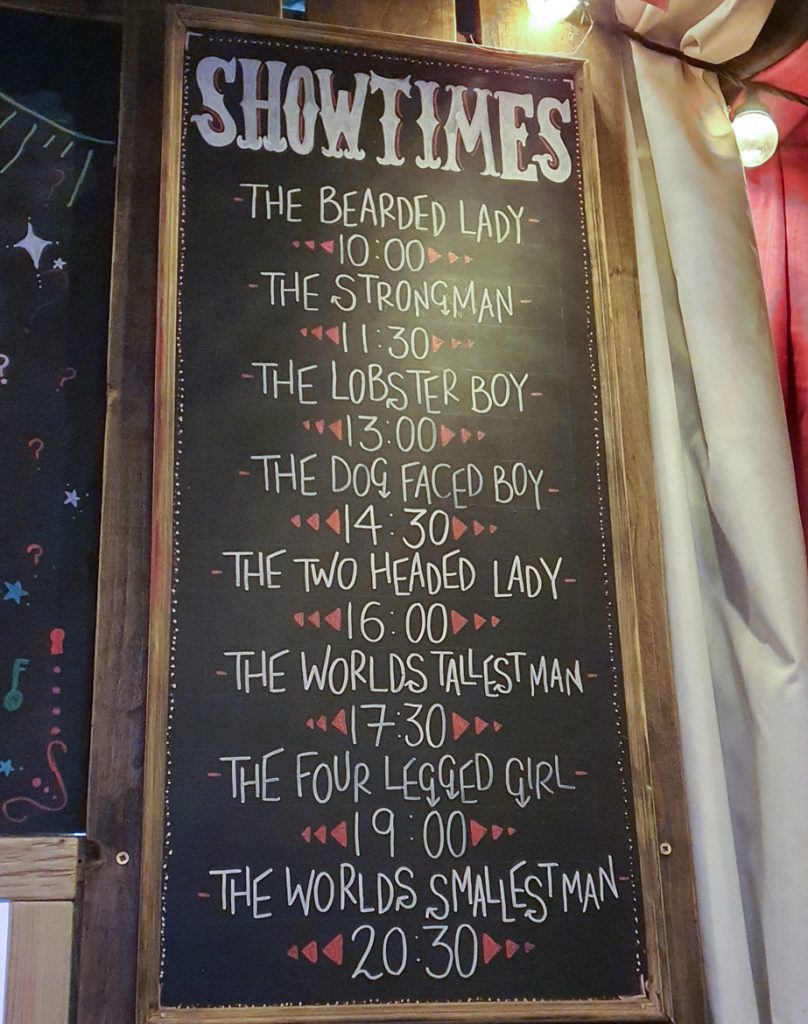 SHOWTIMES
-THE BEARDED LADY-
10:00
-THE STRONGMAN-
11:30
-THE LOBSTER BOY-
13:00
-THE DOG FACED BOY-
14:30
-THE TWO HEADED LADY-
16:00
THE WORLDS TALLEST MAN-
17:30
-THE FOUR LEGGED GIRL-
19:00
-THE WORLDS SMALLEST MAN-
20:30